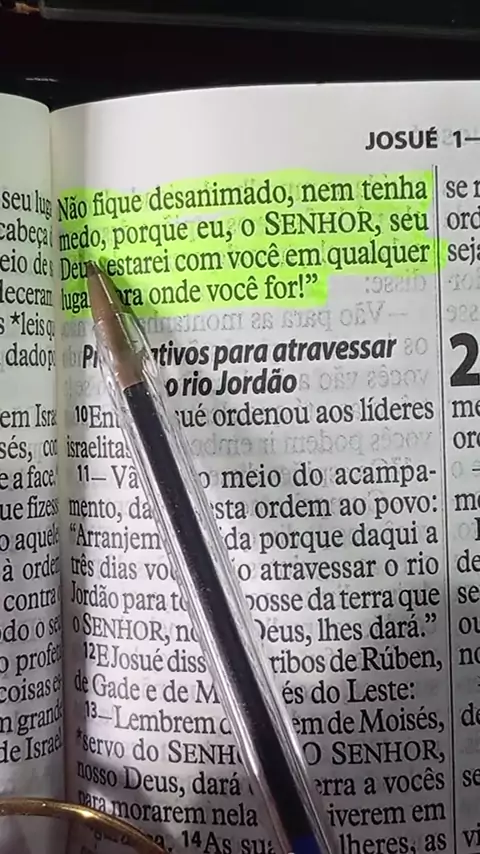 JOSUÉ 1—
seu
cabeça
leceram
*leis
dado
em Isra
sés,
e a face
ue fizes
o aquele
à orde
contra
do o se
o profe
coisas
n grand
de Israe
Não fique desanimado, nem tenha
medo, porque eu, o SENHOR, seu
Deus, estarei com você em qualquer
lugar para onde você for!”
ativos para atravessar
o rio Jordão
10 En sué ordenou aos líderes
israelitas
11 — Vã o meio do acampa-
mento, da esta ordem ao povo:
“Arranjem da porque daqui a
três dias vo o atravessar o rio
Jordão para to posse da terra que
o SENHOR, no Deus, lhes dará.”
12 E Josué diss ribos de Rúben,
de Gade e de M és do Leste:
13 — Lembrem d em de Moisés,
*servo do SENH O SENHOR,
nosso Deus, dará erra a vocês
para morarem nela iverem em
14 As su lheres, as
2